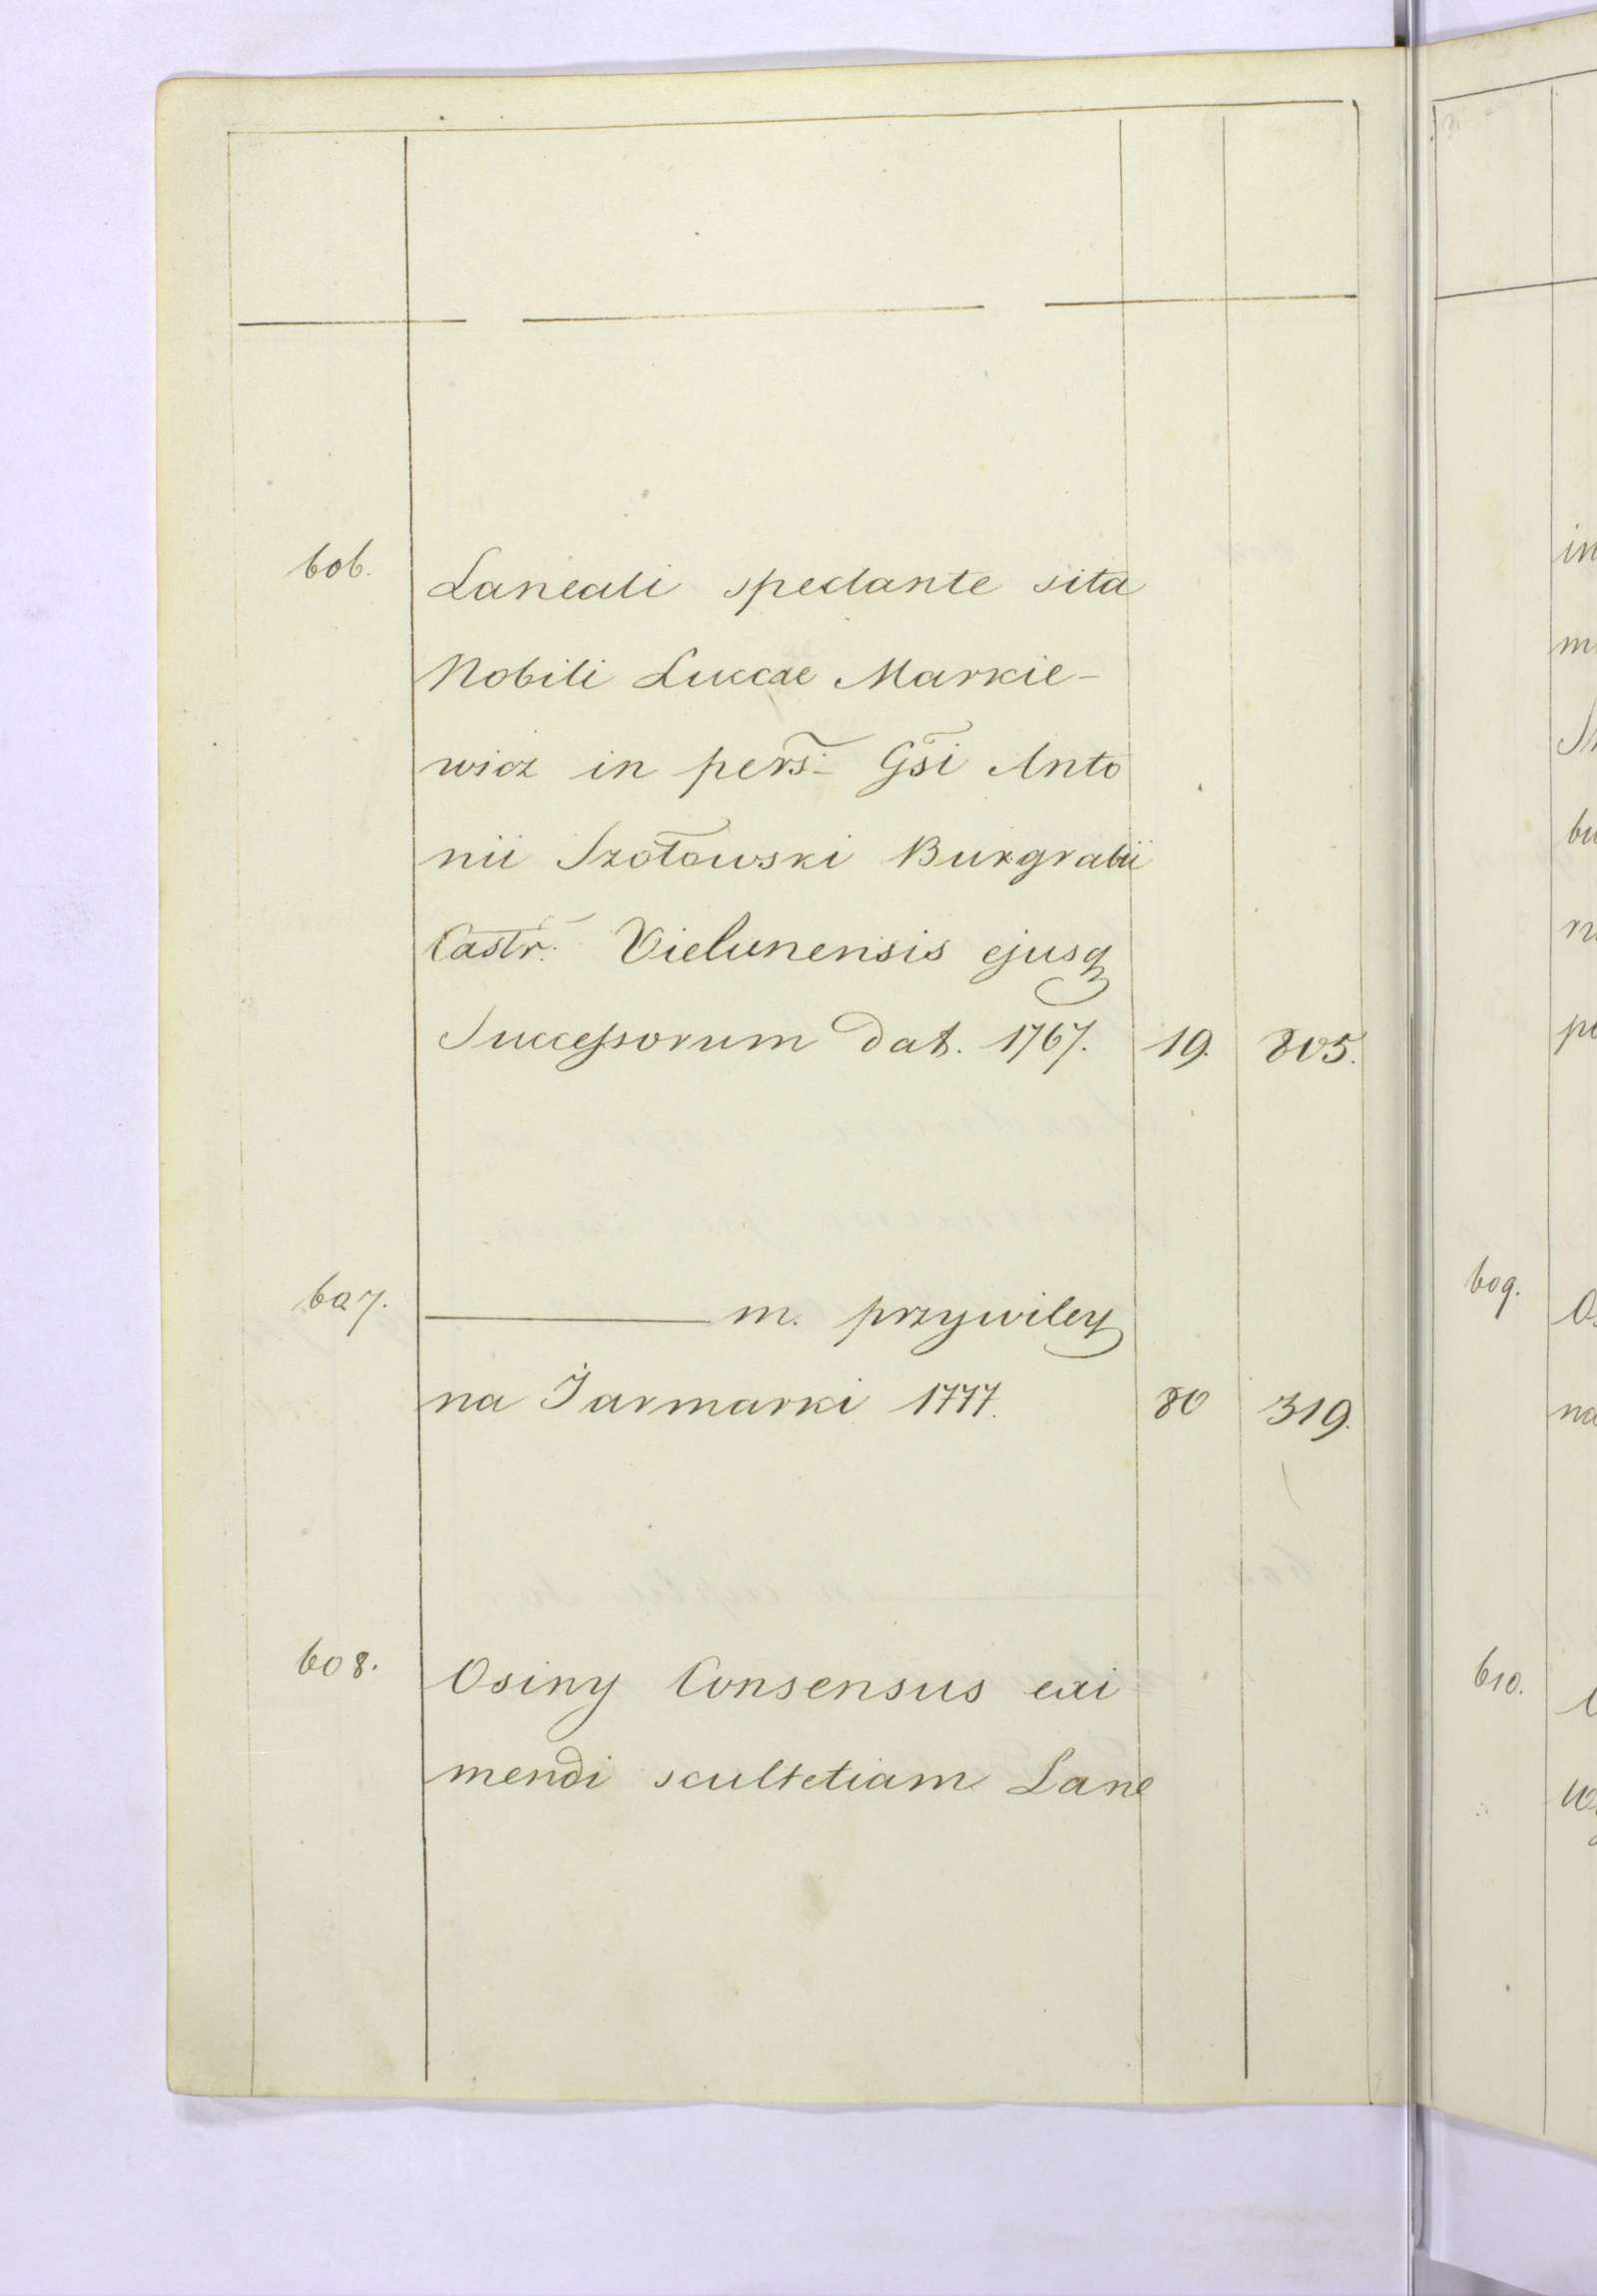 606. Laneali spectante sita
Nobili Luccae Markie-
wicz in pers: Gsi Anto
nii Szołowski Burgrabii
Castr: Vielunensis ejusq
Successorum dat. 1767. 19. 805.
607. ——— m. przywiley
na Jarmarki 1777. 80 319.
608. Osiny Consensus exi
mendi scultetiam Lane
609.
610.